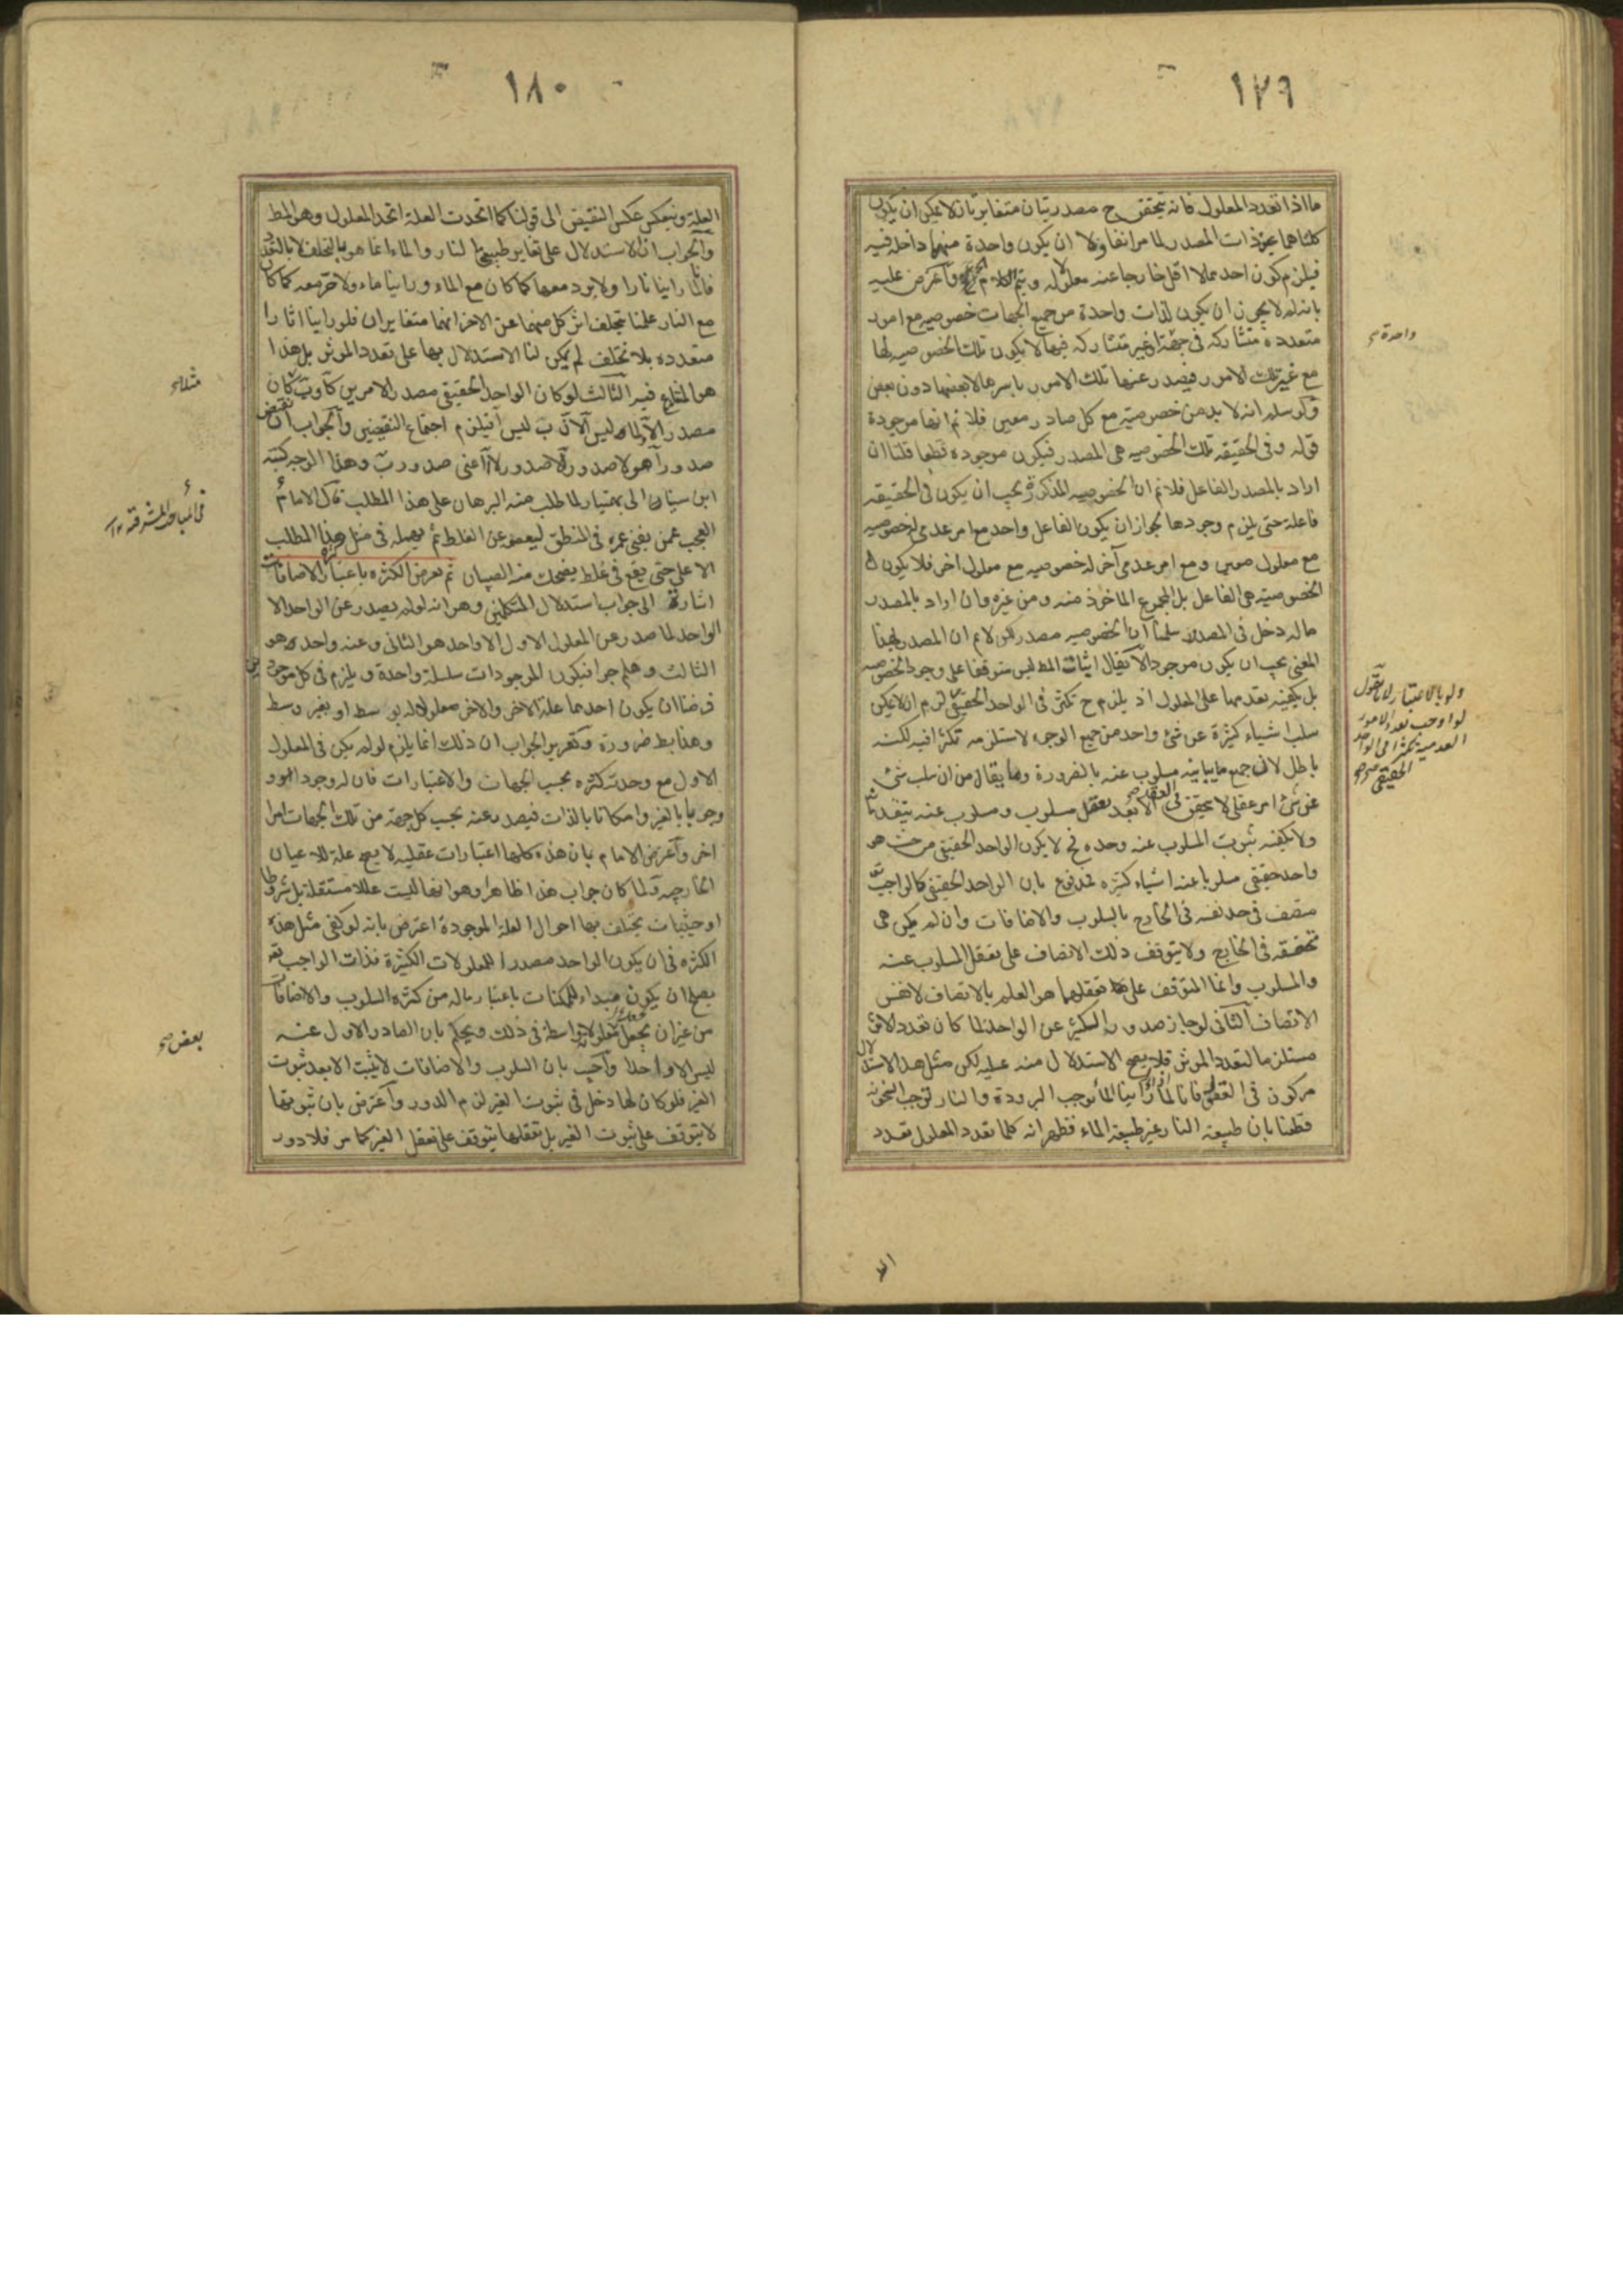 ١٧٩
ما اذا تعدد المعلول فانه يتحقق ح مصدريتان متغايرتان لا يمكن ان يكون
كلتاهما عين ذات المصدر لما مر انفا ولا ان يكون واحدة منهما داخله فيه
فيلزم كون احدهما لا اقل خارجا عنه معلولا له ويتم الكلام واعترض عليه
بانه لم لا يجوز ان يكون لذات واحدة من جميع الجهات خصوصيه مع امور
متعدده متشاركه فى جهة او غير متشاركه فيها لا يكون تلك الخصوصيه لها
واحدة صح
مع غير تلك الامور فيصدر عنها تلك الامور باسرها لا بعضها دون بعض
ولو سلم انه لا بد من خصوصية مع كل صادر معين فلا نم انها موجودة
قوله وفى الحقيقه تلك الخصوصيه هى المصدر فيكون موجوده قطعا قلنا ان
اراد بالمصدر الفاعل فلا نم ان الخصوصيه المذكورة يجب ان يكون فى الحقيقه
فاعلة حتى يلزم وجودها لجواز ان يكون الفاعل واحد مع امر عدمى له خصوصيه
مع معلول معين ومع امر عدمى آخر له خصوصيه مع معلول اخر فلا يكون
الخصوصية هى الفاعل بل المجموع الماخوذ منه ومن غيره وان اراد بالمصدر
ماله دخل فى المصدر سلمنا ان الخصوصيه مصدر لكن لا نم ان المصدر بهذا
المعنى يجب ان يكون موجودا لا يقال اثبات المط ليس متوقفا على وجود الخصوصيه
بل يكفينه تقدمها على المعلول اذ يلزم ح تكثر فى الواحد الحقيقى لزم ان لا يمكن
ولو بالاعتبار لانا نقول
لو اوجب تعدد الامور
العدمية تكثرا فى الواحد
الحقيقى صح
سلب اشياء كثيرة عن شئ واحد من جميع الوجوه لاستلزمه تكثرا فيه لكنه
باطل لان جميع ما يباينه مسلوب عنه بالضرورة وما يقال من ان سلب شئ
عن شئ امر عقلى لا يتحقق فى العقل الا بعد تعقل مسلوب ومسلوب عنه يتقدمانه
ولا يكفيه ثبوت المسلوب عنه وحده فح لا يكون الواحد الحقيقى من حيث هو
واحد حقيقى مسلوبا عنه اشياء كثيره فمدفوع بان الواحد الحقيقى كالواجب تعالى
متصف فى حد نفسه فى الخارج بالسلوب والاضافات وان لم يكن هى
متحققه فى الخارج ولا يتوقف ذلك الاتصاف على تعقل المسلوب عنه
والمسلوب وانما المتوقف على تعقلهما هو العلم بالاتصاف لا نفس
الاتصاف الثانى لو جاز صدور الكثير عن الواحد لما كان تعدد الاثر
مستلزما لتعدد الموثر فلا يصح الاستدلال منه عليه لكن مثل هذا الاستدلال
مركون فى العقول فانا لما راينا الماء يوجب البرودة والنار توجب السخونه
قطعنا بان طبيعة النار غير طبيعة الماء فظهر انه كلما تعدد المعلول تعدد
١٨٠
العلة وينعكس عكس النقيض الى قولنا كلما اتحدت العلة اتحد المعلول وهو المط
والجواب ان الاستدلال على تغاير طبيعتى النار والماء انما هو بالتخلف لا بالتعدد
فانا لما راينا نارا ولا برد معها كما كان مع الماء وراينا ماء ولا حر معه كما كان
مع النار علمنا بتخلف اثر كل منهما عن الاخر انهما متغايران فلو راينا اثارا
متعدده بلا تخلف لم يمكن لنا الاستدلال بها على تعدد الموثر بل هذا
هو المتنازع فيه الثالث لو كان الواحد الحقيقى مصدرا لامرين كآ وب كان
مثلا صح
مصدرا لآ ولما ليس آ لان ب ليس آ فيلزم اجتماع النقيضين والجواب ان نقيض
صدور آ هو لا صدور آ لا صدور لا آ اعنى صدور ب وهذا الوجه كتبه
ابن سينا الى بهمنيار لما طلب منه البرهان على هذا المطلب قال الامام
فى المباحث المشرقية ١٢
العجب ممن يفنى عمره فى المنطق ليعصمه عن الغلط ثم يهمله فى مثل هذا المطلب
الاعلى حتى يقع فى غلط يضحك منه الصبيان ثم تعرض الكثره باعتبار كثرة الاضافات
اشارة الى جواب استدلال المتكلمين وهو انه لو لم يصدر عن الواحد الا
الواحد لما صدر عن المعلول الاول الا واحد هو الثانى وعنه واحد هو
الثالث وهلم جرا فيكون الموجودات سلسلة واحدة ويلزم فى كل موجودين
فرضنا ان يكون احدهما علة للاخر والاخر معلولا له بوسط او بغير وسط
وهذا بط ضرورة وتقرير الجواب ان ذلك انما يلزم لو لم يكن فى المعلول
الاول مع وحدته كثره بحسب الجهات والاعتبارات فان له وجودا
وجوبا بالغير وامكانا بالذات فيصدر عنه بحسب كل جهة من تلك الجهات امرا
اخر واعترض الامام بان هذه كلها اعتبارات عقليه لا يصح علة للاعيان
الخارجيه ولما كان جواب هذا ظاهرا وهو انها ليست عللا مستقلة بل شروطا
او حيثيات يختلف بها احوال العلة الموجودة اعترض بانه لو كفى مثل هذه
الكثره فى ان يكون الواحد مصدرا للمعلولات الكثيرة فذات الواجب تع
يصلح ان يكون مبداء للممكنات باعتبار ماله من كثرة السلوب والاضافات
من غير ان يجعل بعض معلولاته واسطة فى ذلك ويحكم بان الصادر الاول عنه
بعض صح
ليس الا واحدا واجيب بان السلوب والاضافات لا يثبت الا بعد ثبوت
الغير فلو كان لها دخل فى ثبوت الغير لزم الدور واعترض بان ثبوتها
لا يتوقف على ثبوت الغير بل تعقلها يتوقف على تعقل الغير كما مر فلا دور